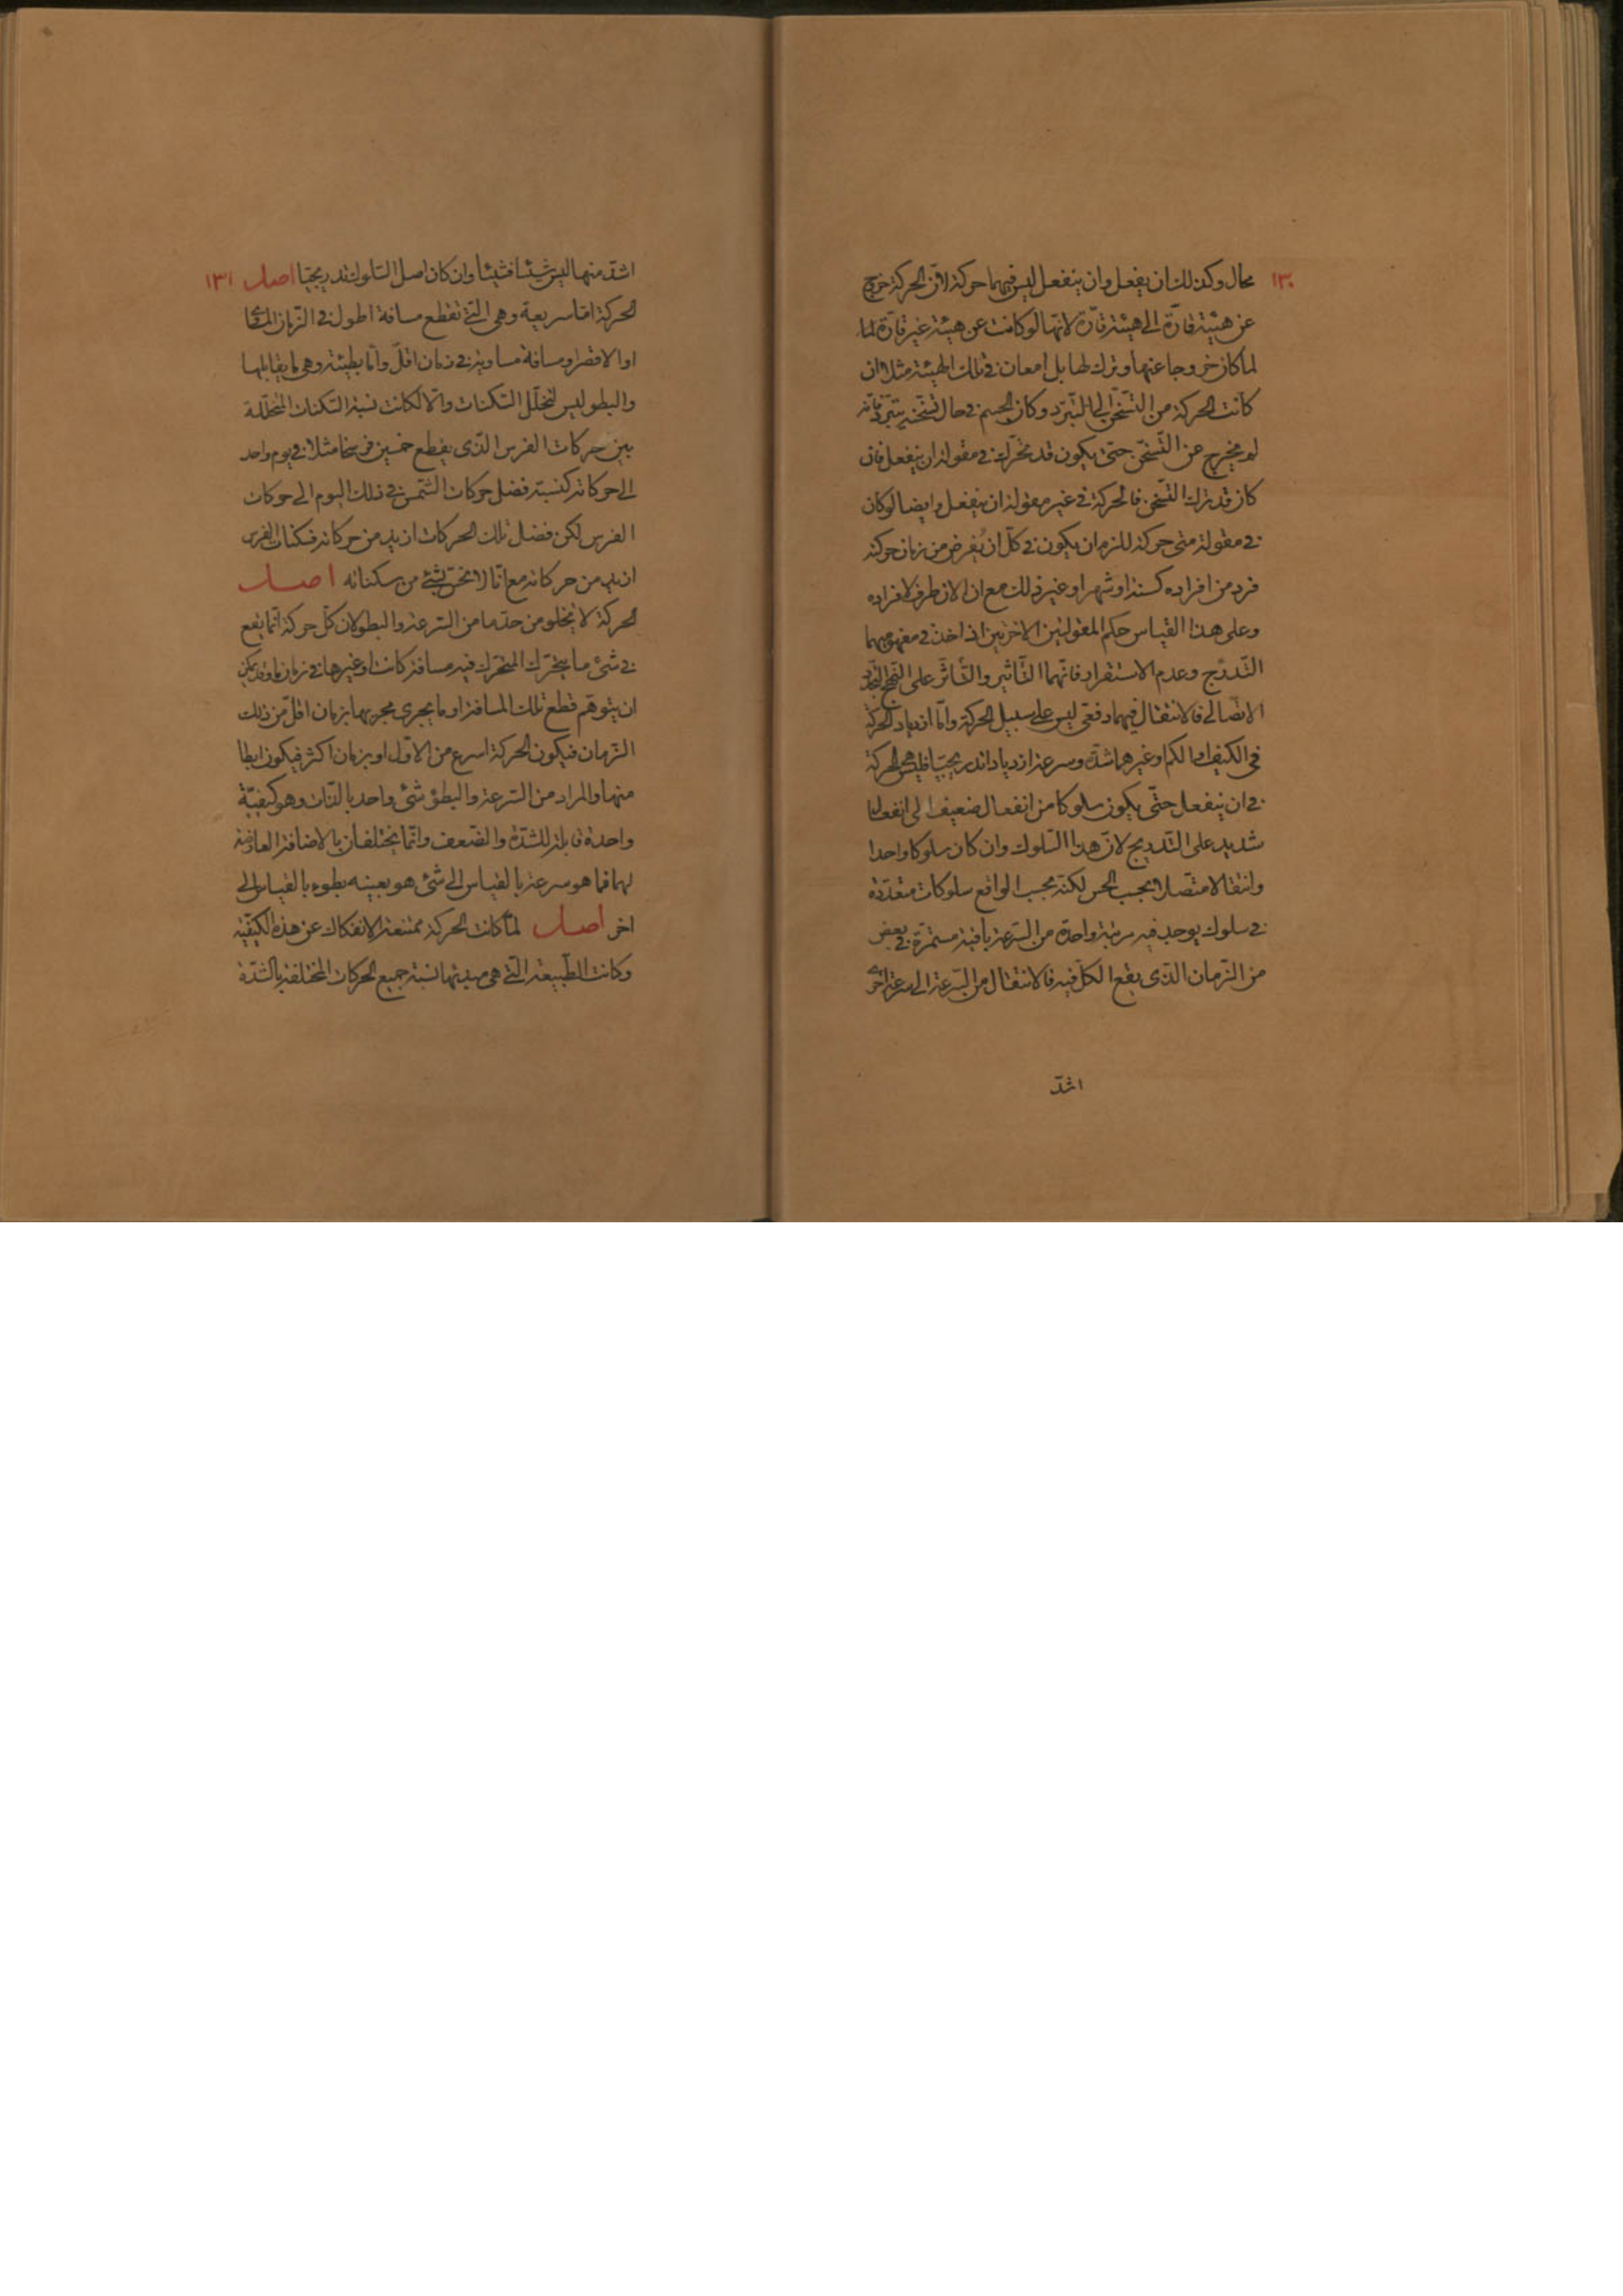 ١٣٠ محال وكذلك ان يفعل وان ينفعل ليس فيهما حركة لان الحركة خروج
عن هيئة قارّة الى هيئة قارّة لانها لو كانت عن هيئة غير قارّة لما
لما كان خروجا عنها وترك لها بل امعان في تلك الهيئة مثلا ان
كانت الحركة من التسخّن الى التبرّد وكان الجسم في حال تسخّنه يتبرّد فانه
لم يخرج عن التّسخّن حتى يكون قد تحرّك في مقولة ان ينفعل فان
كان قد ترك التّسخّن فالحركة في غير مقولة ان ينفعل وايضا لو كان
في مقولة متى حركة للزم ان يكون في كلّ ان يُفرض من زمان حركته
فرد من افراده كسنة او شهر او غير ذلك مع ان الان طرف لافراده
وعلى هذا القياس حكم المقولتين الاخريين اذا اخذ في مفهوميهما
التّدرّج وعدم الاستقرار فانّهما التّأثير والتّأثّر على النّهج التجدّد
الاتّصالي فالانتقال فيهما دفعي ليس على سبيل الحركة وامّا ازدياد الحركة
في الكيف او الكم او غيرهما شدّة وسرعة ازديادا تدريجيّا فليس هي الحركة
في ان ينفعل حتّى يكون سلوكا من انفعال ضعيف الى انفعال
شديد على التّدريج لانّ هذا السّلوك وان كان سلوكا واحدا
وانتقالا متّصلا بحسب الحس لكنّه بحسب الواقع سلوكات متعدّدة
في سلوك يوجد فيه مرتبة واحدة من السّرعة باقية مستمرّة في بعض
من الزّمان الذّى يقع الكلّ فيه فالانتقال من السّرعة الى سرعة اخرى
اشدّ
اشدّ منها ليس شيئا فشيئا وان كان اصل السّلوك تدريجيّا اصل ١٣١
الحركة امّا سريعة وهى الّتي تقطع مسافة اطول في الزّمان المساوي
او الاقصر ومسافة مساوية في زمان اقلّ وامّا بطيئة وهى ما يقابلها
والبطو ليس لتخلّل السّكنات والّا لكانت نسبة السّكنات المتخلّلة
بين حركات الفرس الذّى يقطع خمسين فرسخا مثلا في يوم واحد
الى حركاته كنسبة فضل حركات الشّمس في ذلك اليوم الى حركات
الفرس لكن فضل تلك الحركات ازيد من حركاته فسكنات الفرس
ازيد من حركاته مع انّا لا نحسّ بشئ من سكناته اصل
الحركة لا يخلو من حدّ ما من السّرعة والبطو لان كلّ حركة انّما يقع
في شئ ما يتحرّك المتحرّك فيه مسافة كانت او غيرها في زمان ما وقد يمكن
ان يتوهّم قطع تلك المسافة او ما يجرى مجريها بزمان اقلّ من ذلك
الزّمان فيكون الحركة اسرع من الاوّل او بزمان اكثر فيكون ابطا
منها والمراد من السّرعة والبطؤ شئ واحد بالذّات وهو كيفيّة
واحدة قابلة للشدّة والضّعف وانّما يختلفان بالاضافة العارضة
لهما فما هو سرعة بالقياس الى شئ هو بعينه بطوء بالقياس الى
اخر اصل لمّا كانت الحركة ممتنعة الانفكاك عن هذه الكيفيّة
وكانت الطّبيعة الّتي هى مبدئها نسبة جميع الحركات المختلفة بالشدّة